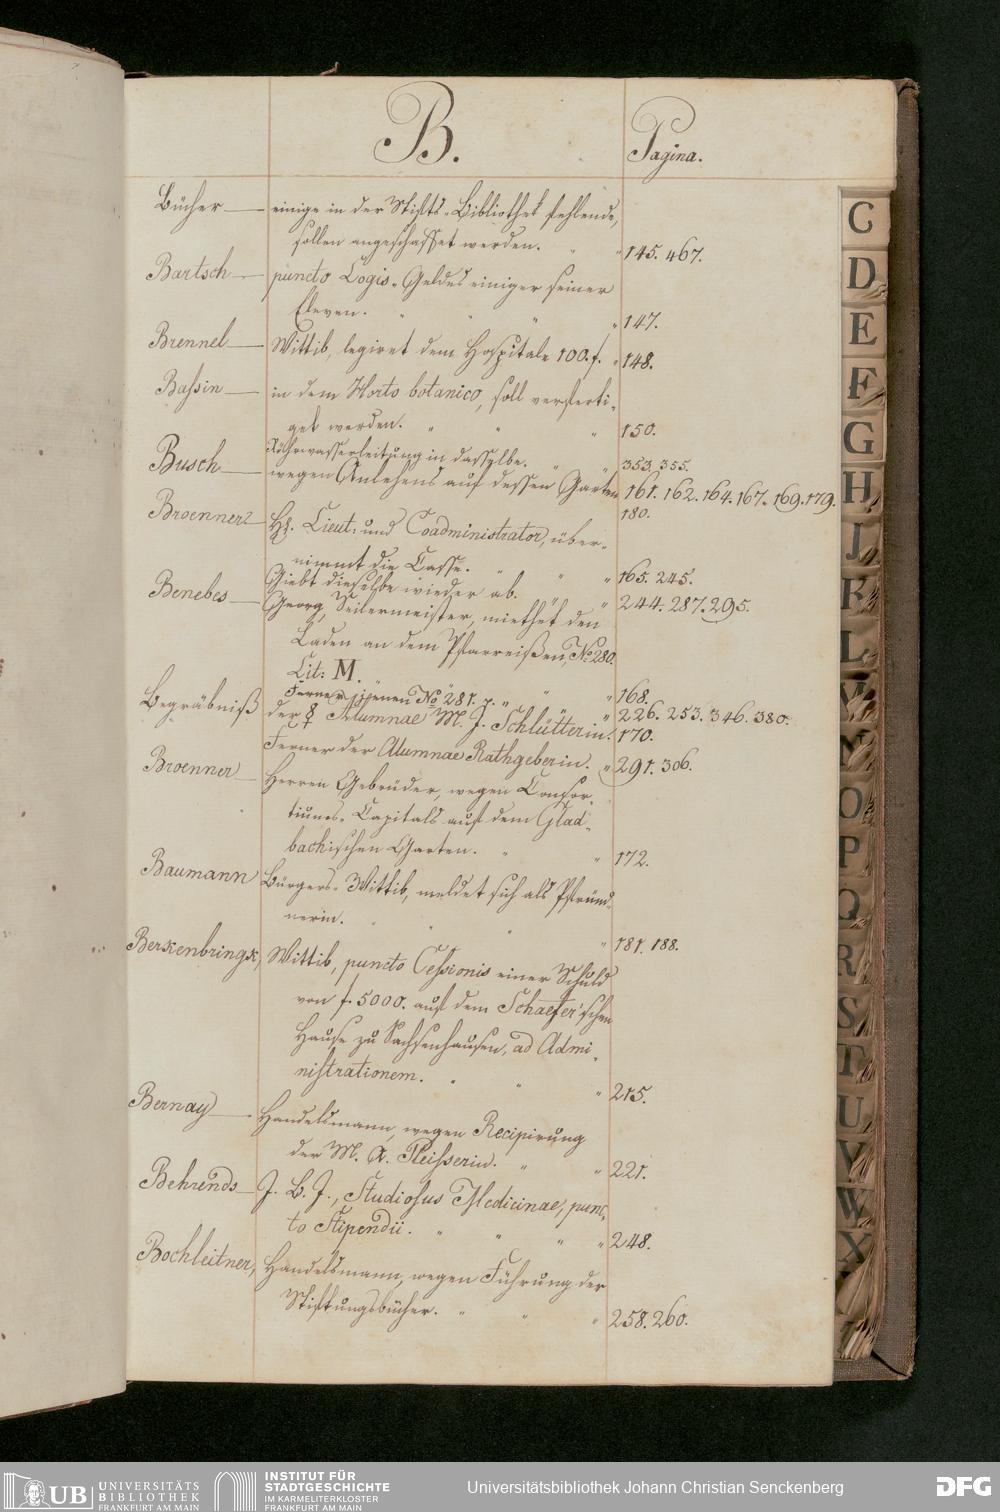 B.
Pagina.
Bücher — einige in der Stifts-Bibliothek fehlende,
sollen angeschaffet werden. " " 145. 467.
Bartsch — puncto Logis-Geldes einiger seiner
Eleven. " " " " 147.
Brennel — Wittib, legiret dem Hospitale 100.f. " 148.
Baſsin — in dem Horto botanico, soll verferti-
get werden. " " " 150.
Röhrwasserleitung in dasselbe. " " 353. 355.
Busch — wegen Anlehens auf dessen Garten 161. 162. 164. 167. 169. 179.
180.
Broenner — H. Lieut: und Coadministrator, über-
nimmt die Casse. " " " 165. 245.
Giebt dieselbe wieder ab. " " 244. 287. 295.
Benebes — Georg, Seilermeister, miethet den
Laden an dem Pfarreißen, No. 280.
Lit: M. " " " 168.
Ferner jenen No 281. " " 226. 253. 346. 380.
Begräbniß der Alumnae M. J. Schlütterin. 170.
Ferner der Alumnae Rathgeberin. " 291. 306.
Broenner — Herren Gebrüder, wegen Consor-
tiums-Capitals auf dem Glad-
bachischen Garten. " " 172.
Baumann Bürgers-Wittib, meldet sich als Pfründ-
nerin. " " " " 181. 188.
Berkenbringk, Wittib, puncto Ceſsionis einer Schuld
von f. 5000. auf dem Schaefer'schen
Hause zu Sachsenhausen, ad Admi-
nistrationem. " " " 215.
Bernay — Handelsmann, wegen Recipirung
der M. A. Pleiſserin. " " 221.
Behrends — J. B. J., Studiosus Medicinae, punc-
to Stipendii. " " " " 248.
Bochleitner, Handelsmann, wegen Führung der
Stiftungsbücher. " " " 258. 260.
C
D
E
F
G
H
J
K
L
M
N
O
P
Q
R
S
T
U
V
W
X
UB UNIVERSITÄTS
BIBLIOTHEK
FRANKFURT AM MAIN
INSTITUT FÜR
STADTGESCHICHTE
IM KARMELITERKLOSTER
FRANKFURT AM MAIN
Universitätsbibliothek Johann Christian Senckenberg
DFG